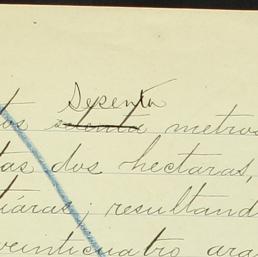 Sesenta
tos setenta metros
tas dos hectaras,
tiáras; resultand
veinticuatro ara